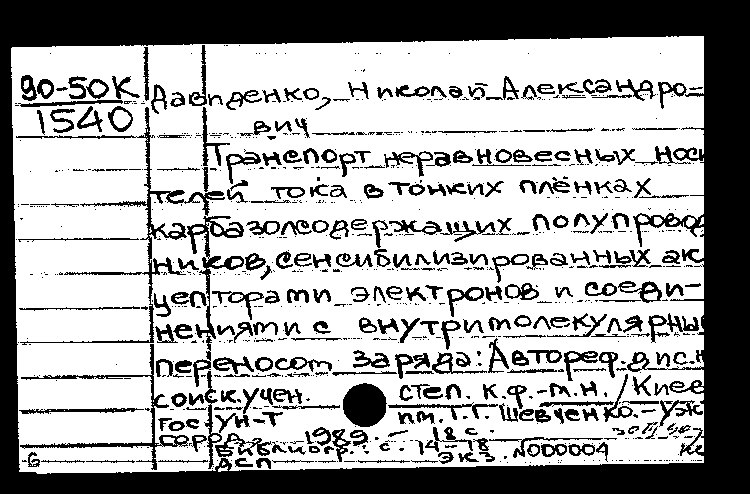 90-50К
1540
Давиденко, Николай Александро=
вич
Транспорт неравновесных носи
телей тока в тонких плёнках
карбазолсодержащих полупровод
ников, сенсибилизированных ак
цепторами электронов и соеди-
нениями с внутримолекулярны
переносом заряда: Автореф. дис. н
соиск. учен. степ. к.ф.-м.н. / Киев
гос. ун-т им. Т.Г. Шевченко. - Уж
город, 1989. - 18 с.
Библиогр.: с. 14-18
ДСП Экз. №000004
6